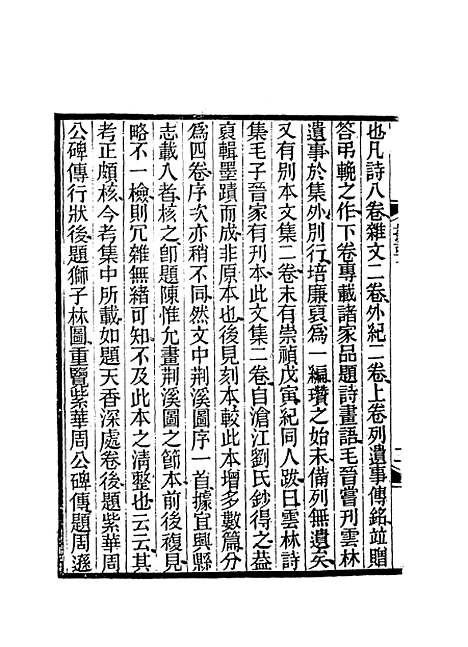 也凡詩八卷雜文二卷外紀二卷上卷列遺事傳銘並贈
答弔輓之作下卷專載諸家品題詩畫語毛晉嘗刊雲林
遺事於集外别行培廉裒為一編瓚之始末備列無遺矣
又有别本文集二卷末有崇禎戊寅紀同人跋曰雲林詩
集毛子晉家有刊本此文集二卷自滄江劉氏鈔得之葢
裒輯墨蹟而成非原本也後見刻本較此本增多數篇分
為四卷序次亦稍不同然文中荆溪圖序一首據宜興縣
志載入者核之卽題陳惟允畫荆溪圖之節本前後複見
略不一檢則冗雜無緒可知不及此本之淸整也云云其
考正頗核今考集中所載如題天香深處卷後題紫華周
公碑傳行狀後題獅子林圖重覽紫華周公碑傳題周遜